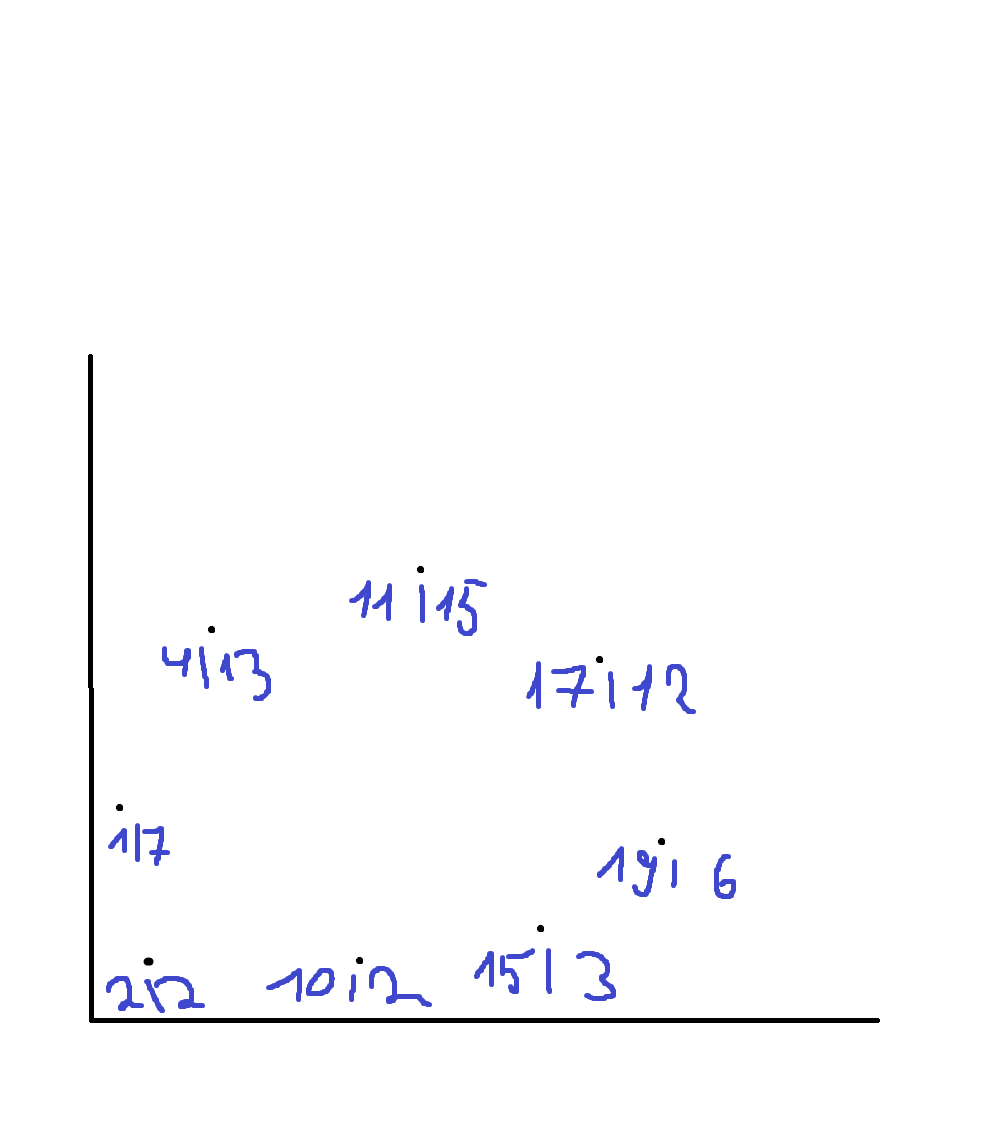 11|15
4|13
17|12
1|7
19| 6
2|2
10|2
15| 3